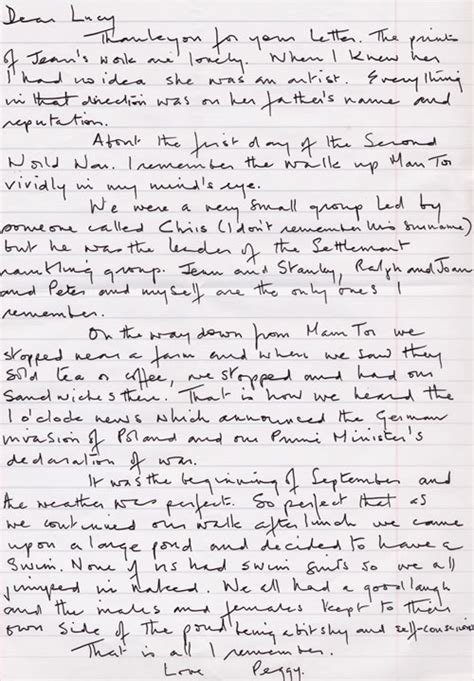 Dear Lucy
Thankyou for your letter. The prints
of Jean's work are lovely. When I knew her
I had no idea she was an artist. Everything
in that direction was on her father's name and
reputation.
About the first day of the Second
World War. I remember the walk up Mam Tor
vividly in my mind's eye.
We were a very small group led by
someone called Chris (I don't remember his surname)
but he was the leader of the Settlement
rambling group. Jean and Stanley, Ralph and Joan
and Peter and myself are the only ones I
remember.
On the way down from Mam Tor we
stopped near a farm and where we saw they
sold tea or coffee, we stopped and had our
sandwiches there. That is how we heard the
1 o'clock news which announced the German
invasion of Poland and our Prime Minister's
declaration of war.
It was the beginning of September and
the weather was perfect. So perfect that as
we continued our walk after lunch we came
upon a large pond and decided to have a
swim. None of us had swim suits so we all
jumped in naked. We all had a good laugh
and the males and females kept to their
own side of the pond being a bit shy and self-conscious
That is all I remember.
Love Peggy.